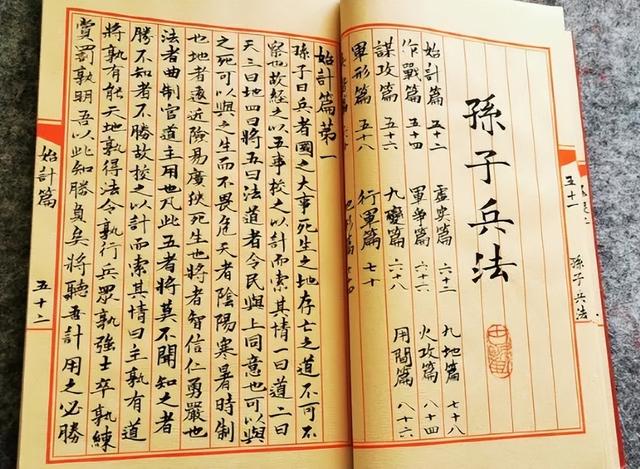 孫子兵法
五十一
孫子兵法
始計篇 五十二 虛實篇 六十三 九地篇 七十八
作戰篇 五十四 軍爭篇 六十六 火攻篇 八十四
謀攻篇 五十六 九變篇 六十八 用間篇 八十六
軍形篇 五十八 行軍篇 七十
始計篇第一
孫子曰兵者國之大事死生之地存亡之道不可不
察也故經之以五事校之以計而索其情一曰道二曰
天三曰地四曰將五曰法道者令民與上同意也可以與
之死可以與之生而不畏危天者陰陽寒暑時制
也地者遠近險易廣狹死生也將者智信仁勇嚴也
法者曲制官道主用也凡此五者將莫不聞知之者
勝不知者不勝故校之以計而索其情曰主孰有道
將孰有能天地孰得法令孰行兵眾孰強士卒孰練
賞罰孰明吾以此知勝負矣將聽吾計用之必勝
始計篇
五十二